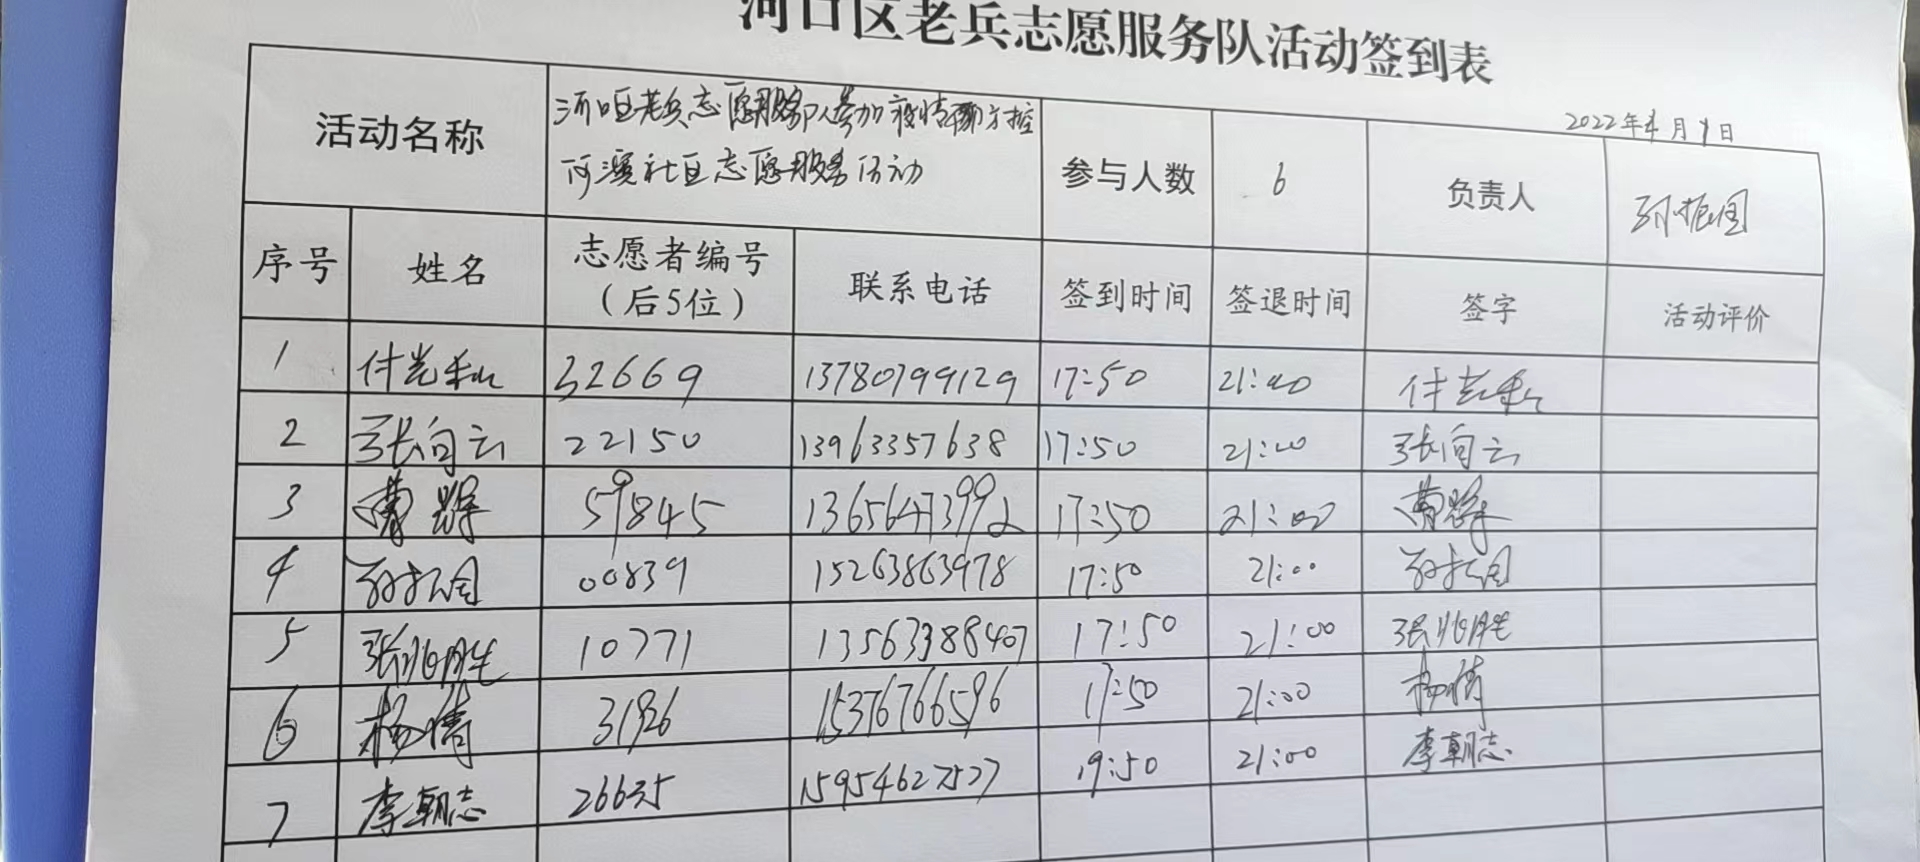 河口区老兵志愿服务队活动签到表
2022年4月9日
活动名称 河口区老兵志愿服务队参加疫情防控
河滨社区志愿服务活动
参与人数 6 负责人 孙振国
序号 姓名 志愿者编号 联系电话 签到时间 签退时间 签字 活动评价
(后5位)
1 付光利 32669 13780799129 17:50 21:00 付光利
2 张向云 22150 13963357638 17:50 21:00 张向云
3 曹辉 59845 13656473992 17:50 21:00 曹辉
4 孙振国 00839 15263863978 17:50 21:00 孙振国
5 张兆胜 10771 13563388407 17:50 21:00 张兆胜
6 杨倩 31926 15376766596 17:50 21:00 杨倩
7 李朝志 26635 15954627527 19:50 21:00 李朝志